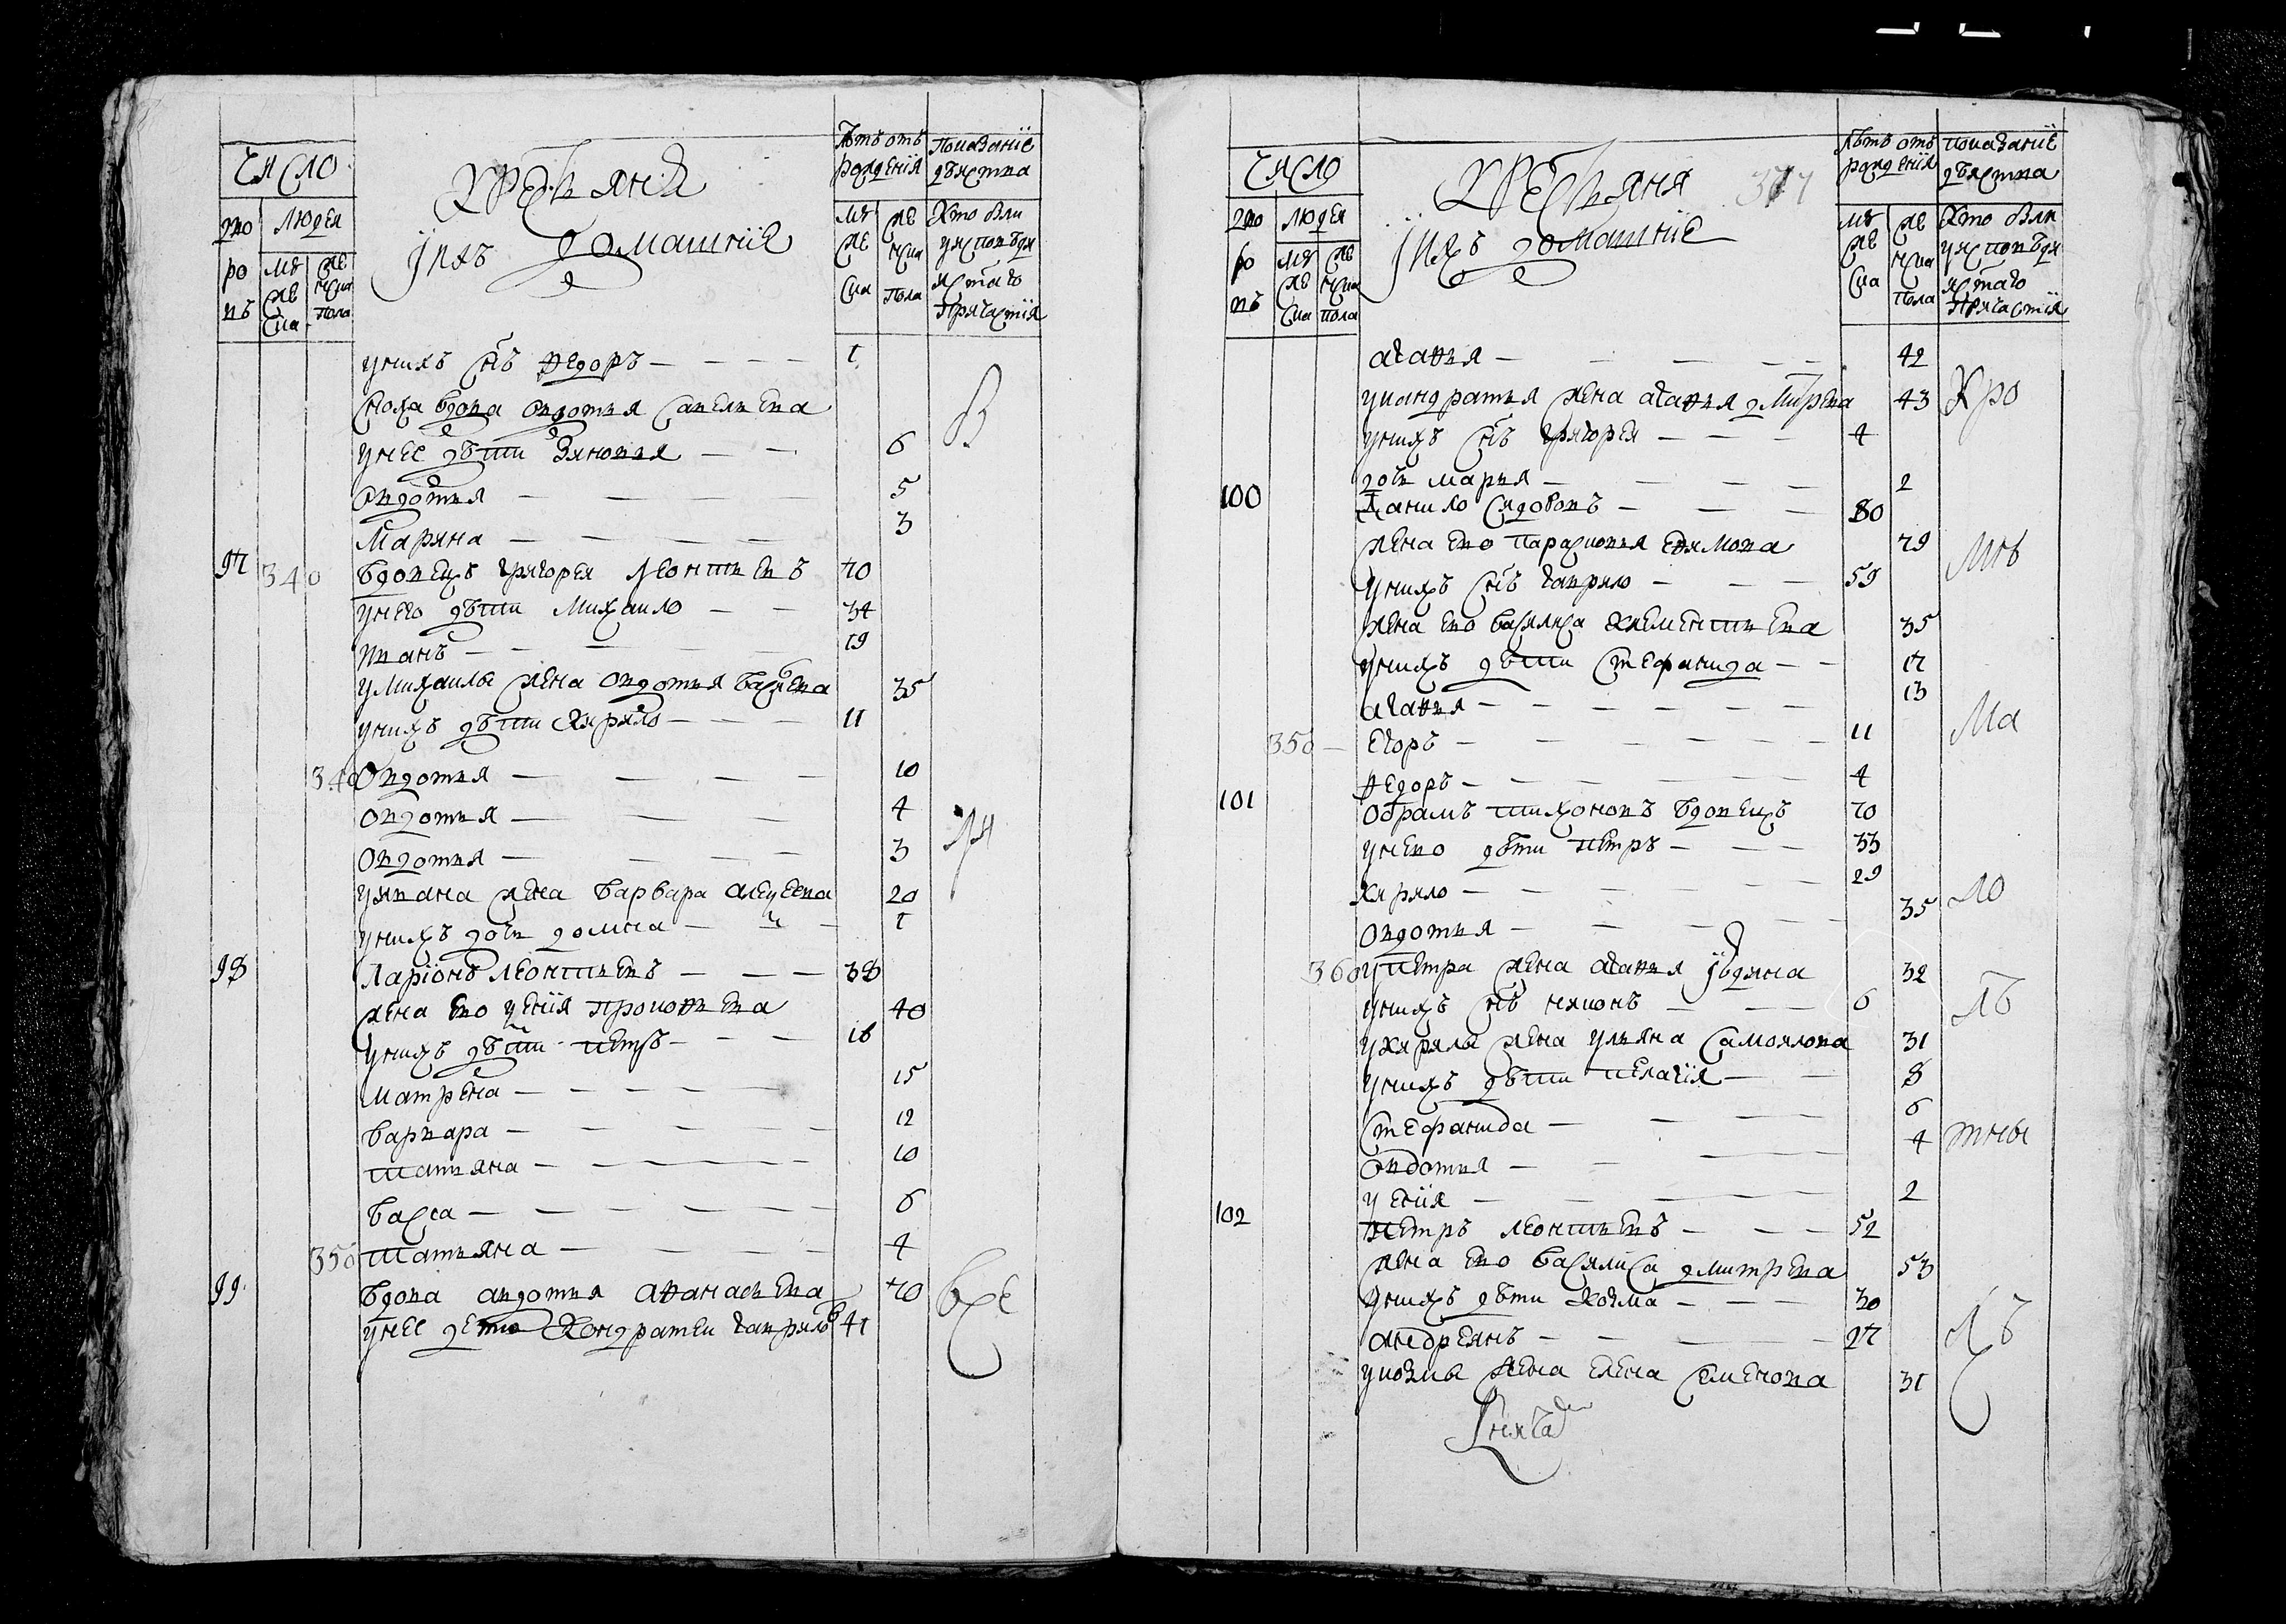 число
дворовъ
людей
мужеска
женска пола
Крестьяня
ихъ домашніе
Лѣтъ отъ рожденія
мужеска
женска пола
Показаніе действа
Хто был у исповѣди и стаго причастия
у нихъ снъ Федоръ — 1
сноха вдова Овдотия Савельева
у нее дѣти Зиновия — 6
Овдотия — 5
Марина — 3
97 340 вдовецъ Григорей Леонтьевъ 70
у него дѣти Михаило — 34
Иванъ — 19
у Михаилы жена Овдотия 35
у нихъ дѣти Кирило — 11
340 Овдотия — 10
Овдотия — 4
Овдотия — 3
у Ивана жена Варвара 20
у нихъ дочь Домна — 1
98 Ларіонъ Леонтьевъ — 38
жена ево Ксенія Прокофьева 40
у нихъ дѣти Петръ — 16
Матрена — 15
Варвара — 12
Татьяна — 10
Васса — 6
350 Татьяна — 4
99 вдова Авдотия Афанасьева 70
у нее дети Кондратей Гаврило 41
число
дворовъ
людей
мужеска
женска пола
Крестьяня
ихъ домашніе
377
Лѣтъ отъ рожденія
мужеска
женска пола
показаніе действа
Хто был у исповѣди и стаго причастия
Агафия — 42
у Кондратия жена Агафия Дмитрева 43
у нихъ снъ Григорей — 4
дочь Мария — 2
100 Данило Сидоровъ — 80
жена ево Парасковия Ефимова 79
у нихъ снъ Гаврило — 59
жена ево Василиса Клементьева 35
у нихъ дѣти Стефанида — 17
Агафия — 13
350 — Егоръ — 11
Федоръ — 4
101 Обрамъ Тихоновъ вдовецъ 70
у нево дѣти Петръ — 33
Кирило — 29
Овдотия — 35
360 у Петра жена Агафия 32
у нихъ снъ Никонъ — 6
у Кирилы жена Ульяна Самоилова 31
у нихъ дѣти Пелагія — 8
Стефанида — 6
Овдотия — 4
Ксенія — 2
102 Петръ Леонтьевъ — 52
жена ево Василиса Дмитрева 53
у нихъ дѣти Козма — 30
Андреянъ — 27
у Козмы жена Елена Семенова 31